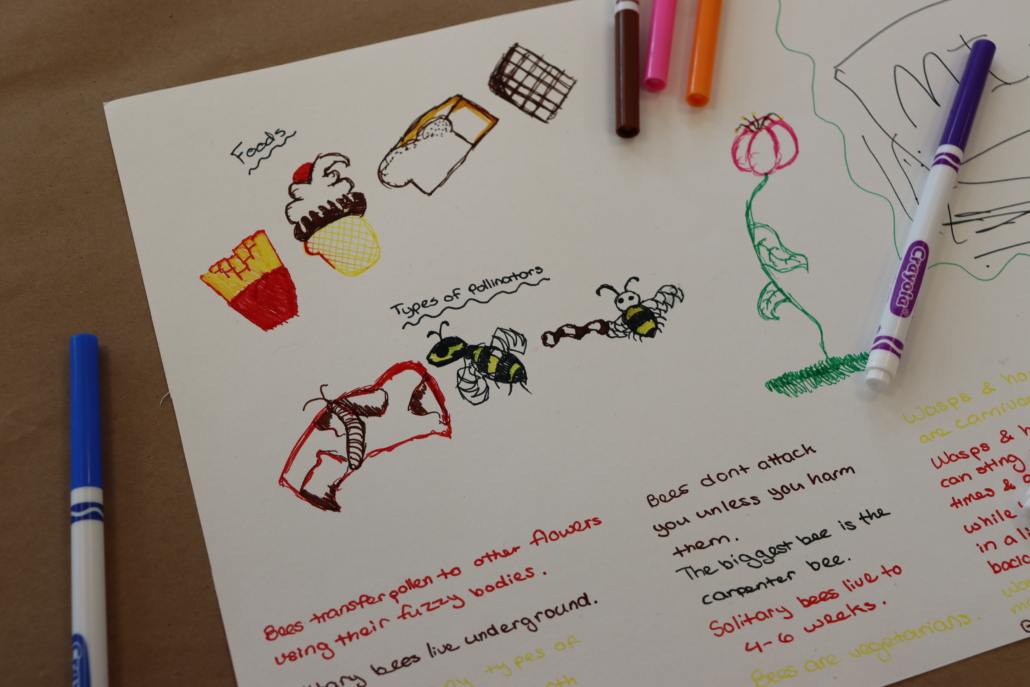 Foods
Types of Pollinators
Bees transfer pollen to other flowers
using their fuzzy bodies.
bees live underground.
types of
Bees dont attack
you unless you harm
them.
The biggest bee is the
carpenter bee.
Solitary bees live to
4-6 weeks.
Bees are vegetarians.
Wasps &
are carnivo
Wasps & h
can sting
times &
while
in a li
Crayola